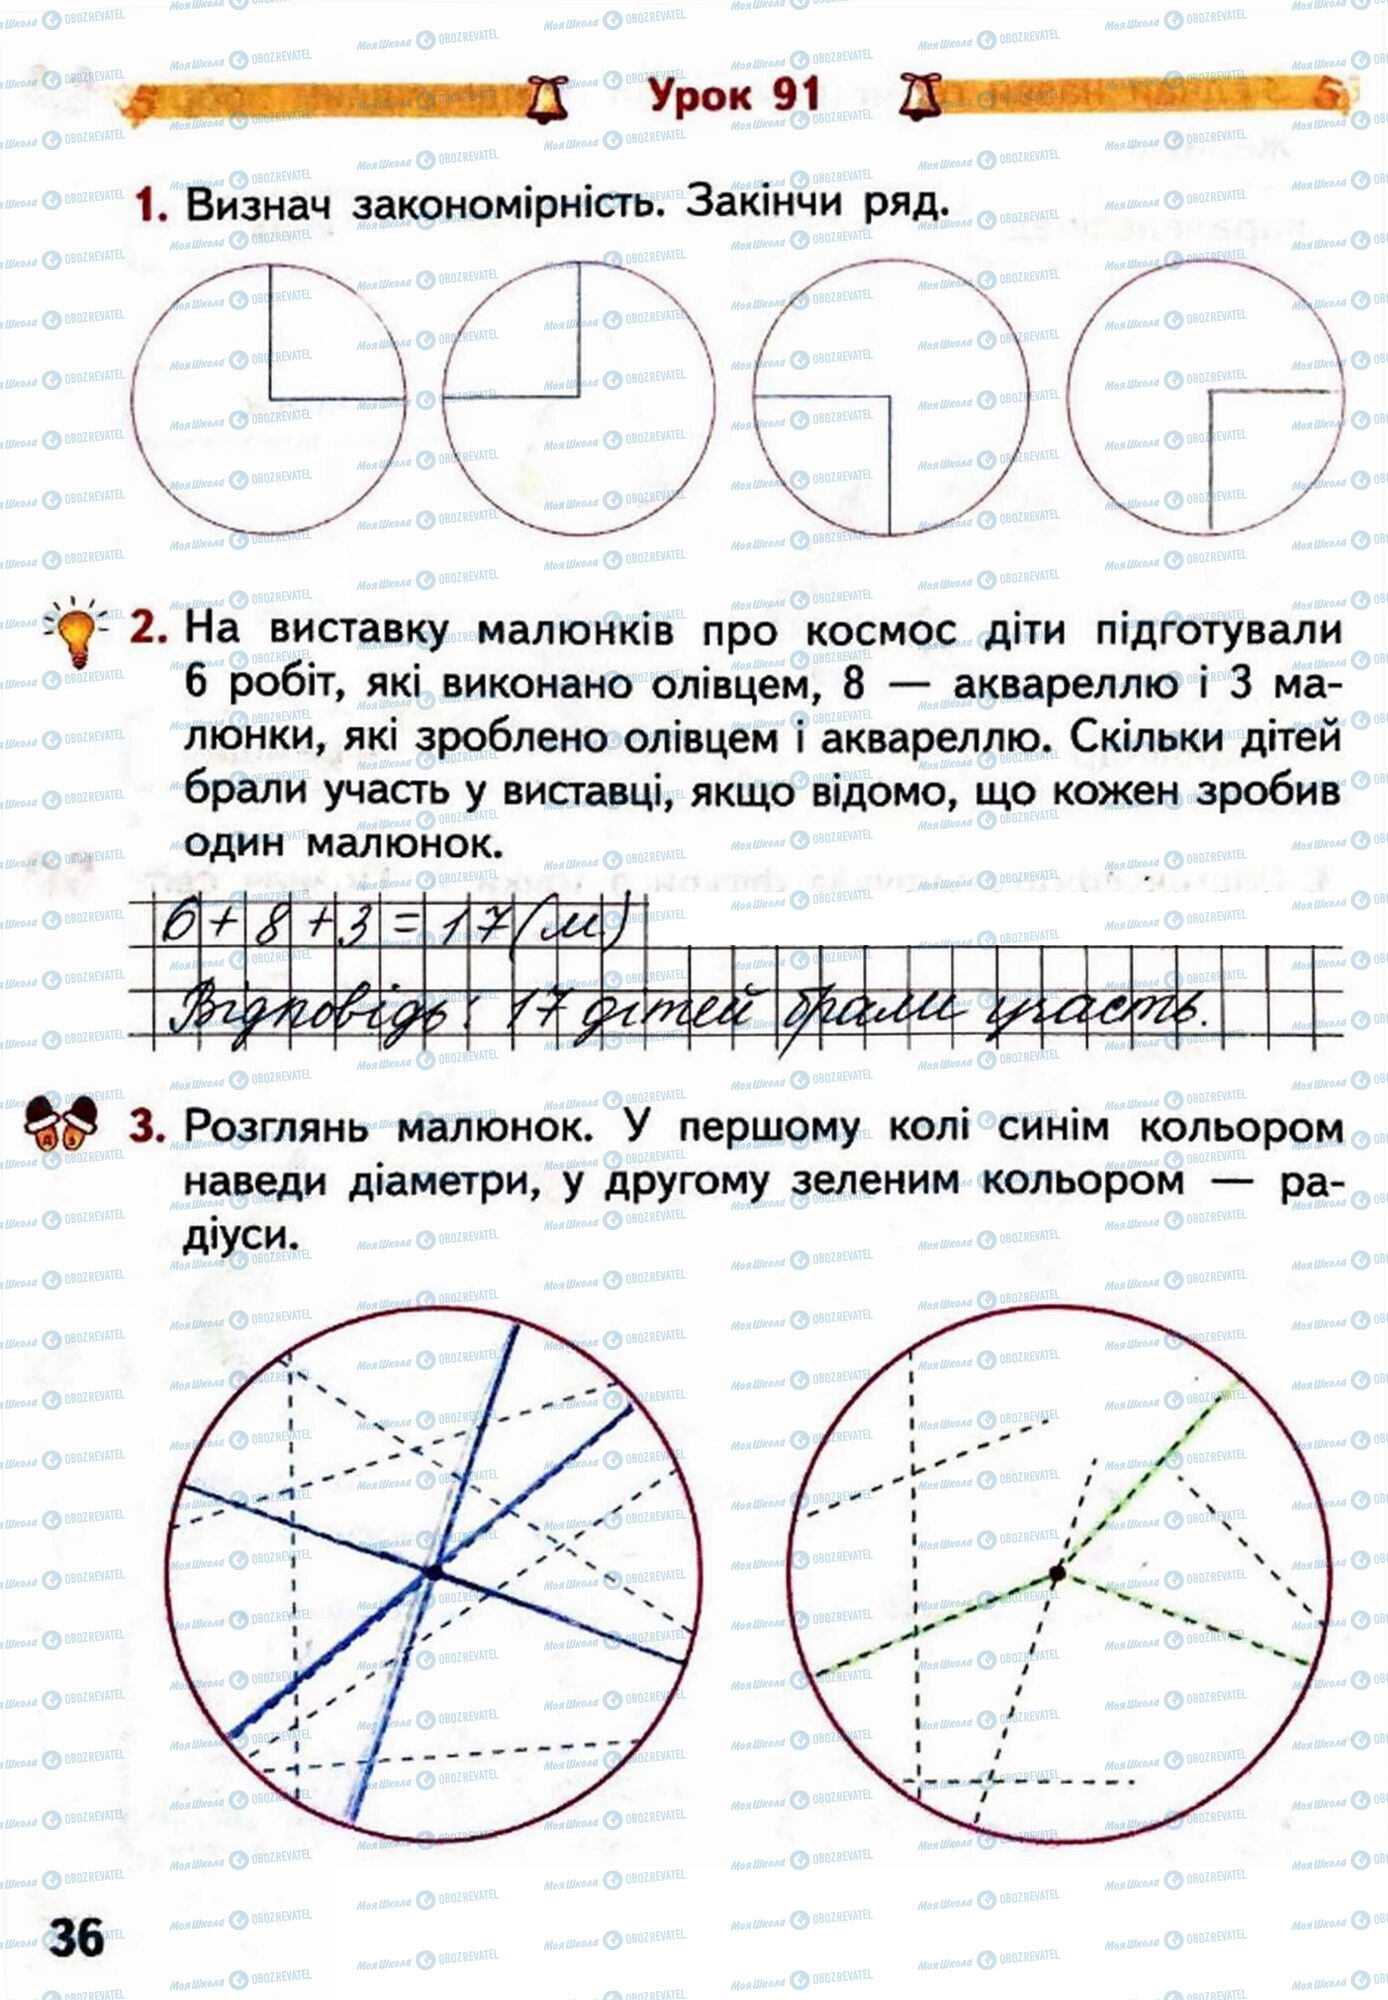 Урок 91
1. Визнач закономірність. Закінчи ряд.
2. На виставку малюнків про космос діти підготували
6 робіт, які виконано олівцем, 8 — аквареллю і 3 ма-
люнки, які зроблено олівцем і аквареллю. Скільки дітей
брали участь у виставці, якщо відомо, що кожен зробив
один малюнок.
6+8+3=17(м)
Відповідь: 17 дітей брали участь.
3. Розглянь малюнок. У першому колі синім кольором
наведи діаметри, у другому зеленим кольором — ра-
діуси.
36
МояШкола OBOZREVATEL